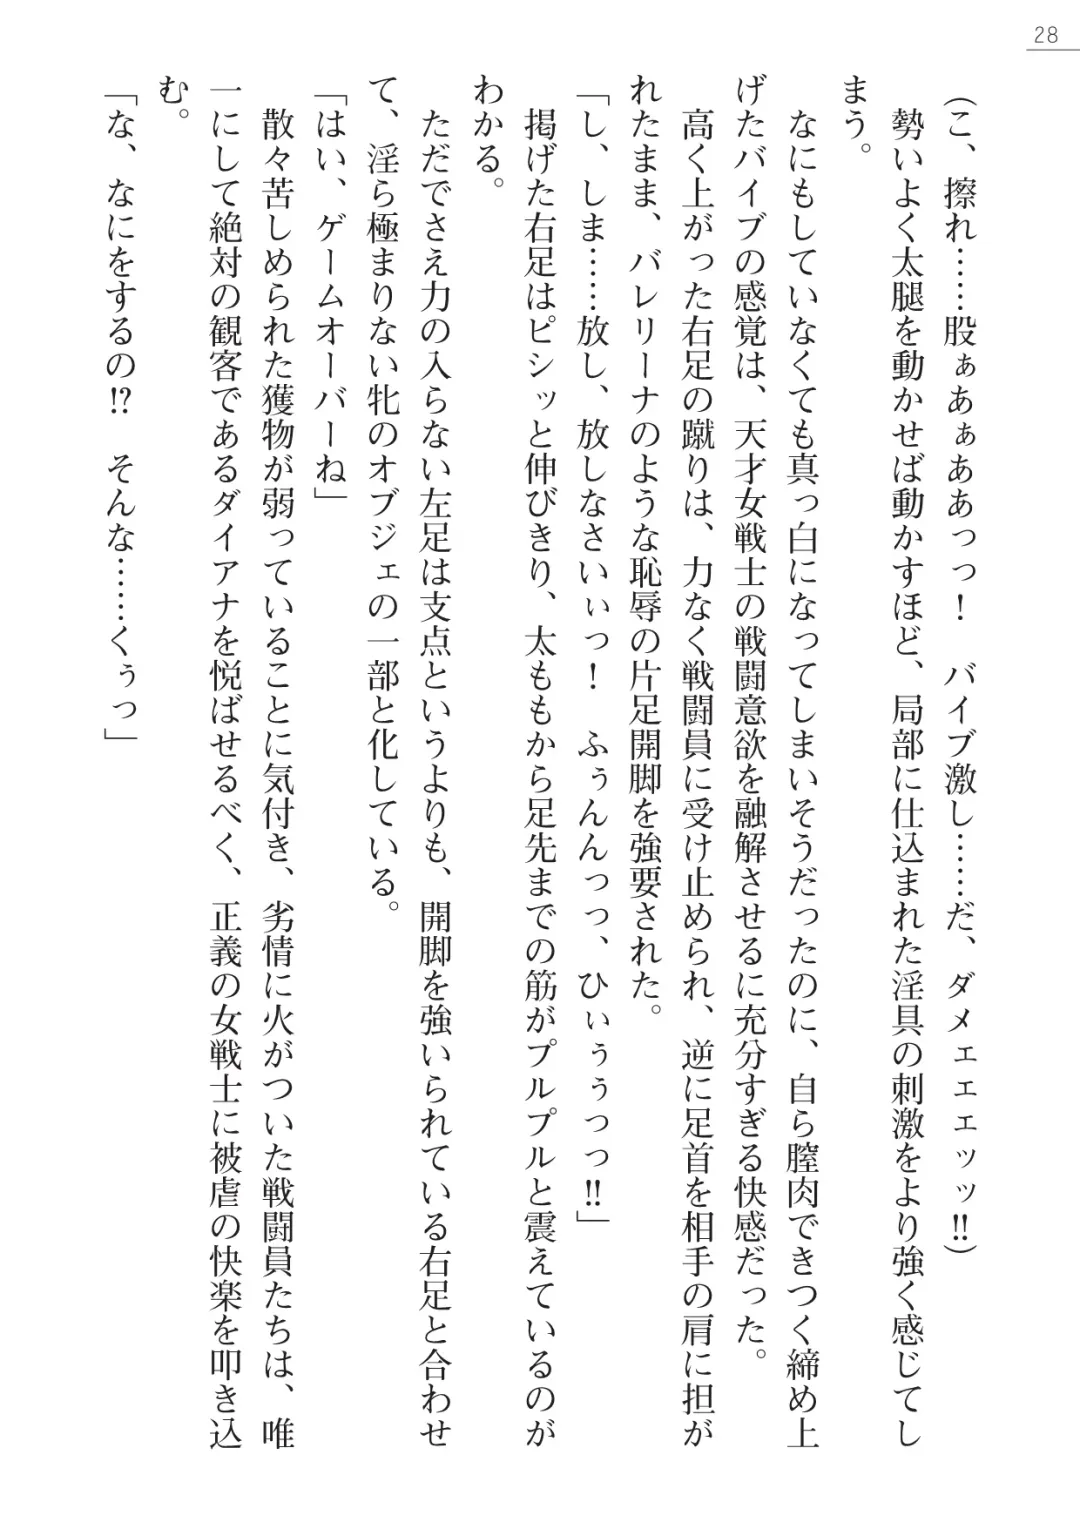 28
(こ、擦れ……股ぁあぁああっっ!　バイブ激し……だ、ダメェェェッッ!!)
勢いよく太腿を動かせば動かすほど、局部に仕込まれた淫具の刺激をより強く感じてし
まう。
なにもしていなくても真っ白になってしまいそうだったのに、自ら膣肉できつく締め上
げたバイブの感覚は、天才女戦士の戦闘意欲を融解させるに充分すぎる快感だった。
高く上がった右足の蹴りは、力なく戦闘員に受け止められ、逆に足首を相手の肩に担が
れたまま、バレリーナのような恥辱の片足開脚を強要された。
「し、しま……放し、放しなさいぃっ!　ふぅんんっっ、ひぃぅぅっっ!!」
掲げた右足はピシッと伸びきり、太ももから足先までの筋がプルプルと震えているのが
わかる。
ただでさえ力の入らない左足は支点というよりも、開脚を強いられている右足と合わせ
て、淫ら極まりない牝のオブジェの一部と化している。
「はい、ゲームオーバーね」
散々苦しめられた獲物が弱っていることに気付き、劣情に火がついた戦闘員たちは、唯
一にして絶対の観客であるダイアナを悦ばせるべく、正義の女戦士に被虐の快楽を叩き込
む。
「な、なにをするの!?　そんな……くぅっ」